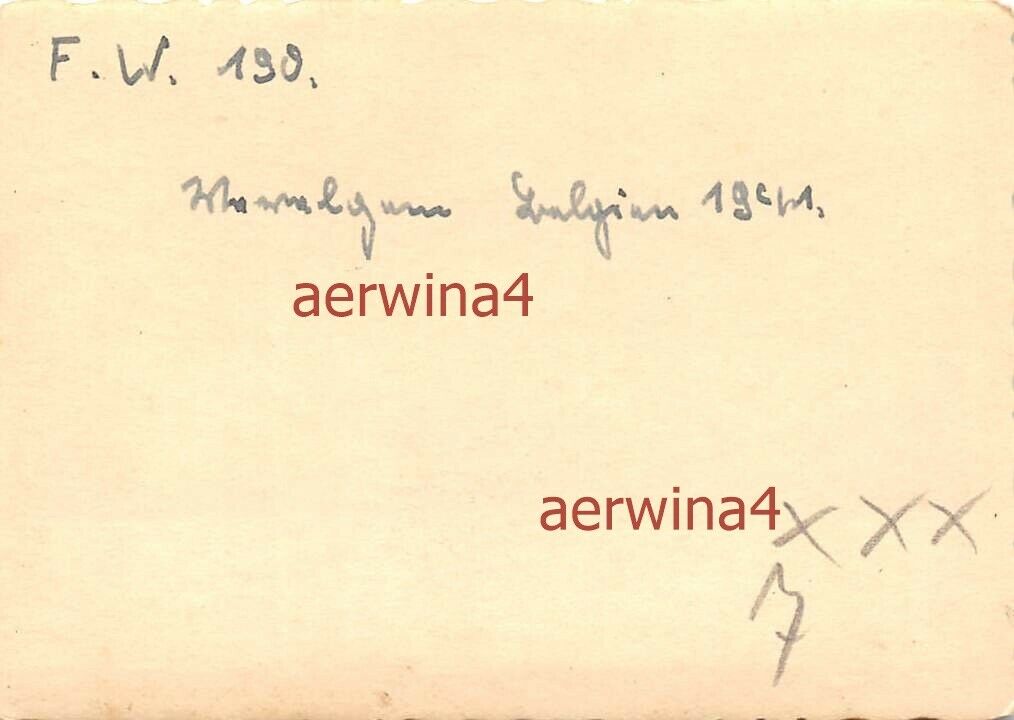 F. W. 190.
Wevelgem Belgien 1941.
aerwina4
aerwina4
X X X
7